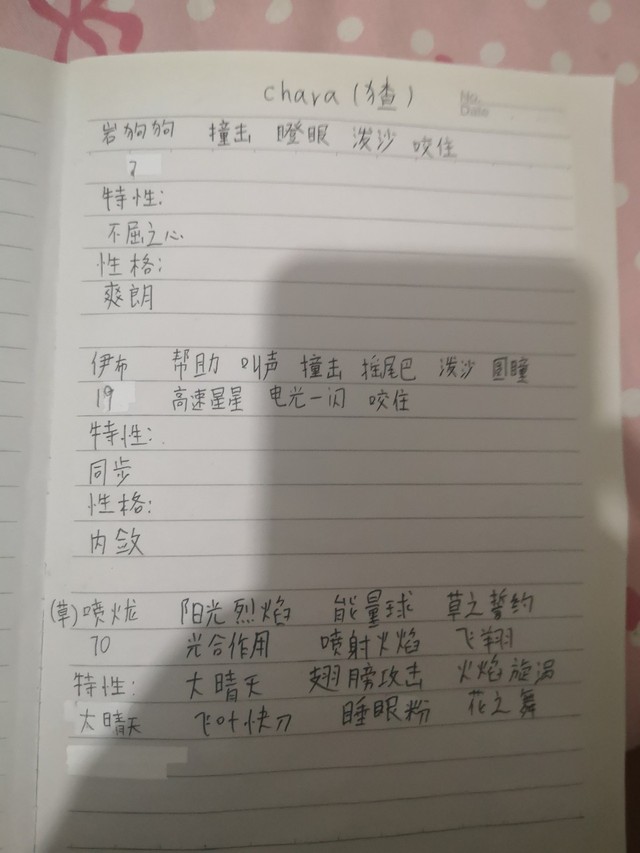 No.
Date
chara (猹)
岩狗狗 撞击 瞪眼 泼沙 咬住
7
特性:
不屈之心
性格:
爽朗
伊布 帮助 叫声 撞击 摇尾巴 泼沙 圆瞳
19 高速星星 电光一闪 咬住
特性:
同步
性格:
内敛
(草)喷火龙 阳光烈焰 能量球 草之誓约
70 光合作用 喷射火焰 飞翔
特性: 大晴天 翅膀攻击 火焰旋涡
大晴天 飞叶快刀 睡眠粉 花之舞